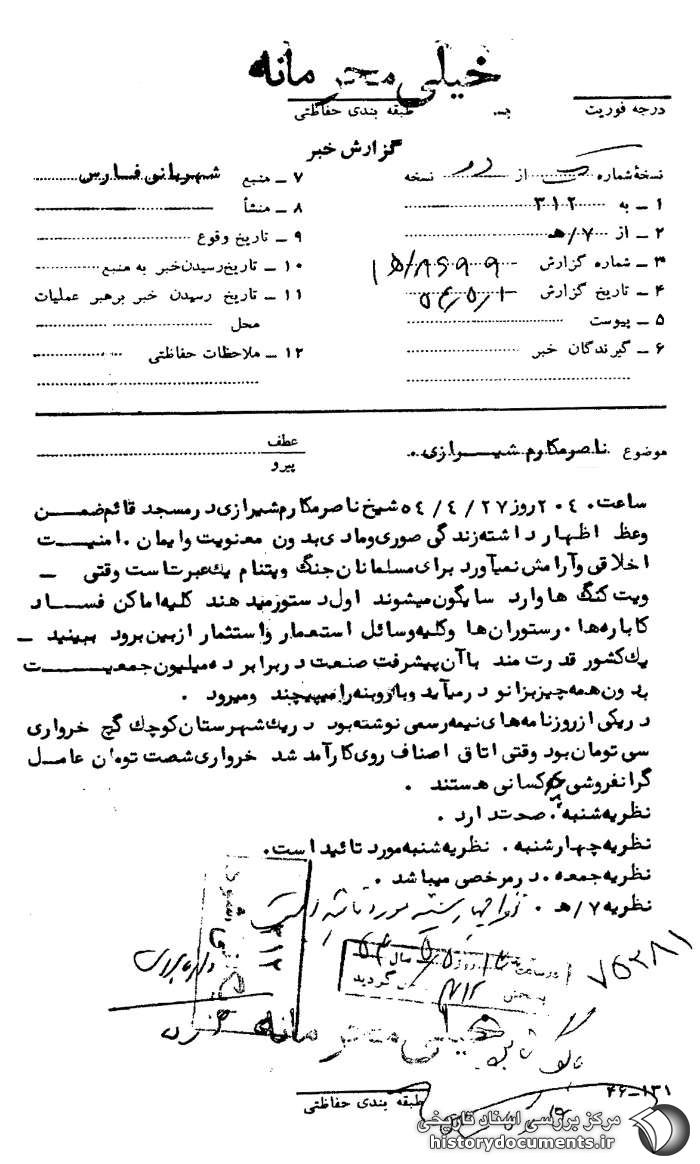 خیلی محرمانه
درجه فوریت
طبقه بندی حفاظتی
گزارش خبر
نسخهٔ شماره از دو نسخه
۱ ـ به ۳۱۲
۲ ـ از ۷/هـ
۳ ـ شماره گزارش
۴ ـ تاریخ گزارش
۵ ـ پیوست
۶ ـ گیرندگان خبر
۷ ـ منبع شهربانی فارس
۸ ـ منشأ
۹ ـ تاریخ وقوع
۱۰ ـ تاریخ رسیدن خبر به منبع
۱۱ ـ تاریخ رسیدن خبر برهبر عملیات
محل
۱۲ ـ ملاحظات حفاظتی
موضوع ناصر مکارم شیرازی.
عطف
پیرو
ساعت ۲۰۴۰ روز ۵۴/۴/۲۷ شیخ ناصر مکارم شیرازی در مسجد قائم ضمن
وعظ اظهار داشته زندگی صوری و مادی بدون معنویت و ایمان . امنیت
اخلاقی و آرامش نمیآورد برای مسلمانان جنگ ویتنام یک عبرت است وقتی ـ
ویت کنگ ها وارد سایگون میشوند اول دستور میدهند کلیه اماکن فساد
کاباره‌ها . رستوران‌ها و کلیه وسائل استعمار و استثمار از بین برود ببینید ـ
یک کشور قدرت مند با آن پیشرفت صنعت در برابر ده میلیون جمعیت
بدون همه چیز بزانو در میآید و بار و بنه را میپیچند و میرود .
در یکی از روزنامه‌های نیمه رسمی نوشته بود در یک شهرستان کوچک گچ خرواری
سی تومان بود وقتی اتاق اصناف روی کار آمد شد خرواری شصت تومان عامل
گرانفروشی چه کسانی هستند .
نظریه شنبه . صحت دارد .
نظریه چهارشنبه . نظریه شنبه مورد تائید است.
نظریه جمعه . در مرخصی میباشد .
نظریه ۷/هـ . نظریه چهارشنبه مورد تائید است
در ساعت روز سال
به بخش ۳۱۲ گردید
۳۱۲
۷۵۳۸۱
خیلی محرمانه
۴۶-۱۳۱
طبقه بندی حفاظتی
مرکز بررسی اسناد تاریخی
historydocuments.ir